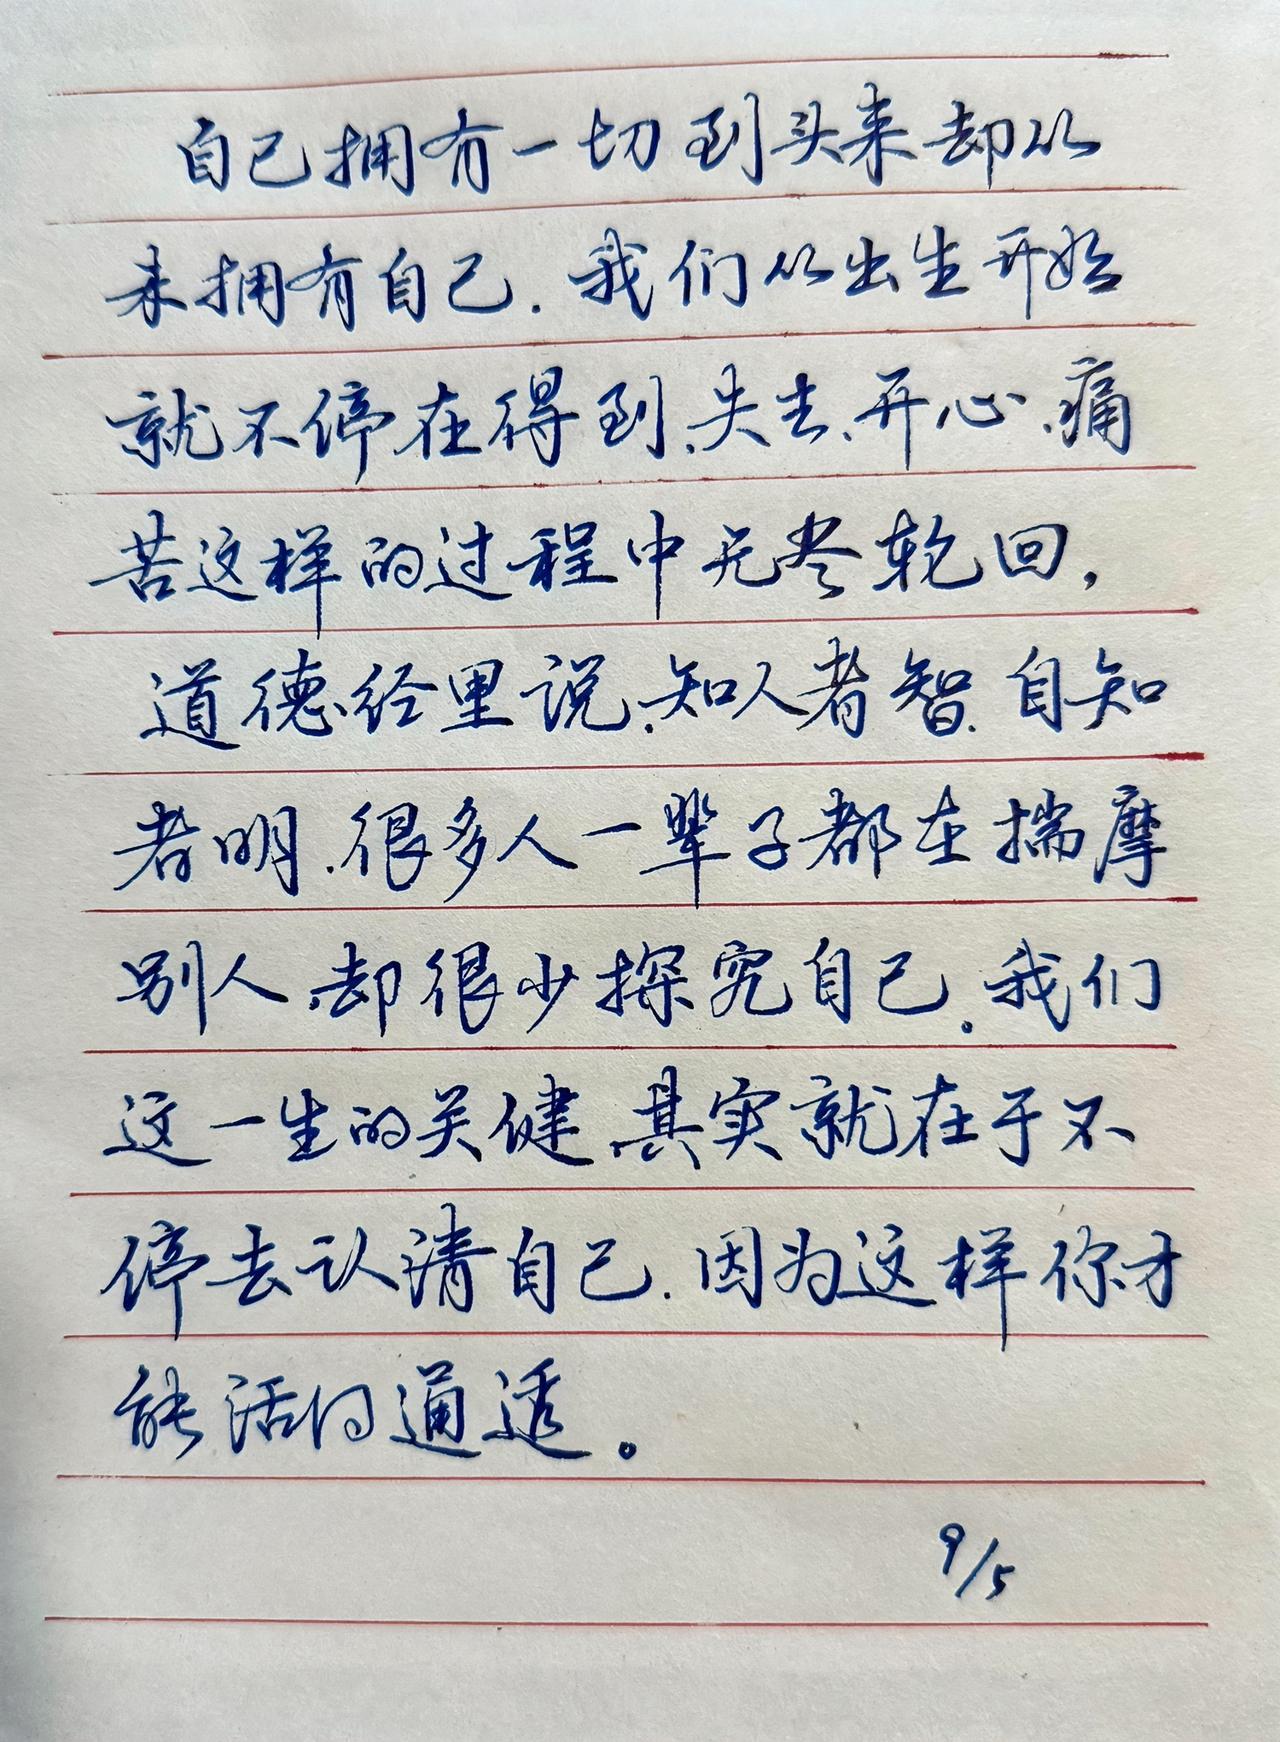 自己拥有一切到头来却从
未拥有自己.我们从出生开始
就不停在得到、失去、开心、痛
苦这样的过程中无尽轮回，
道德经里说、知人者智、自知
者明.很多人一辈子都在揣摩
别人、却很少探究自己。我们
这一生的关健、其实就在于不
停去认清自己.因为这样你才
能活的通透。
9/5